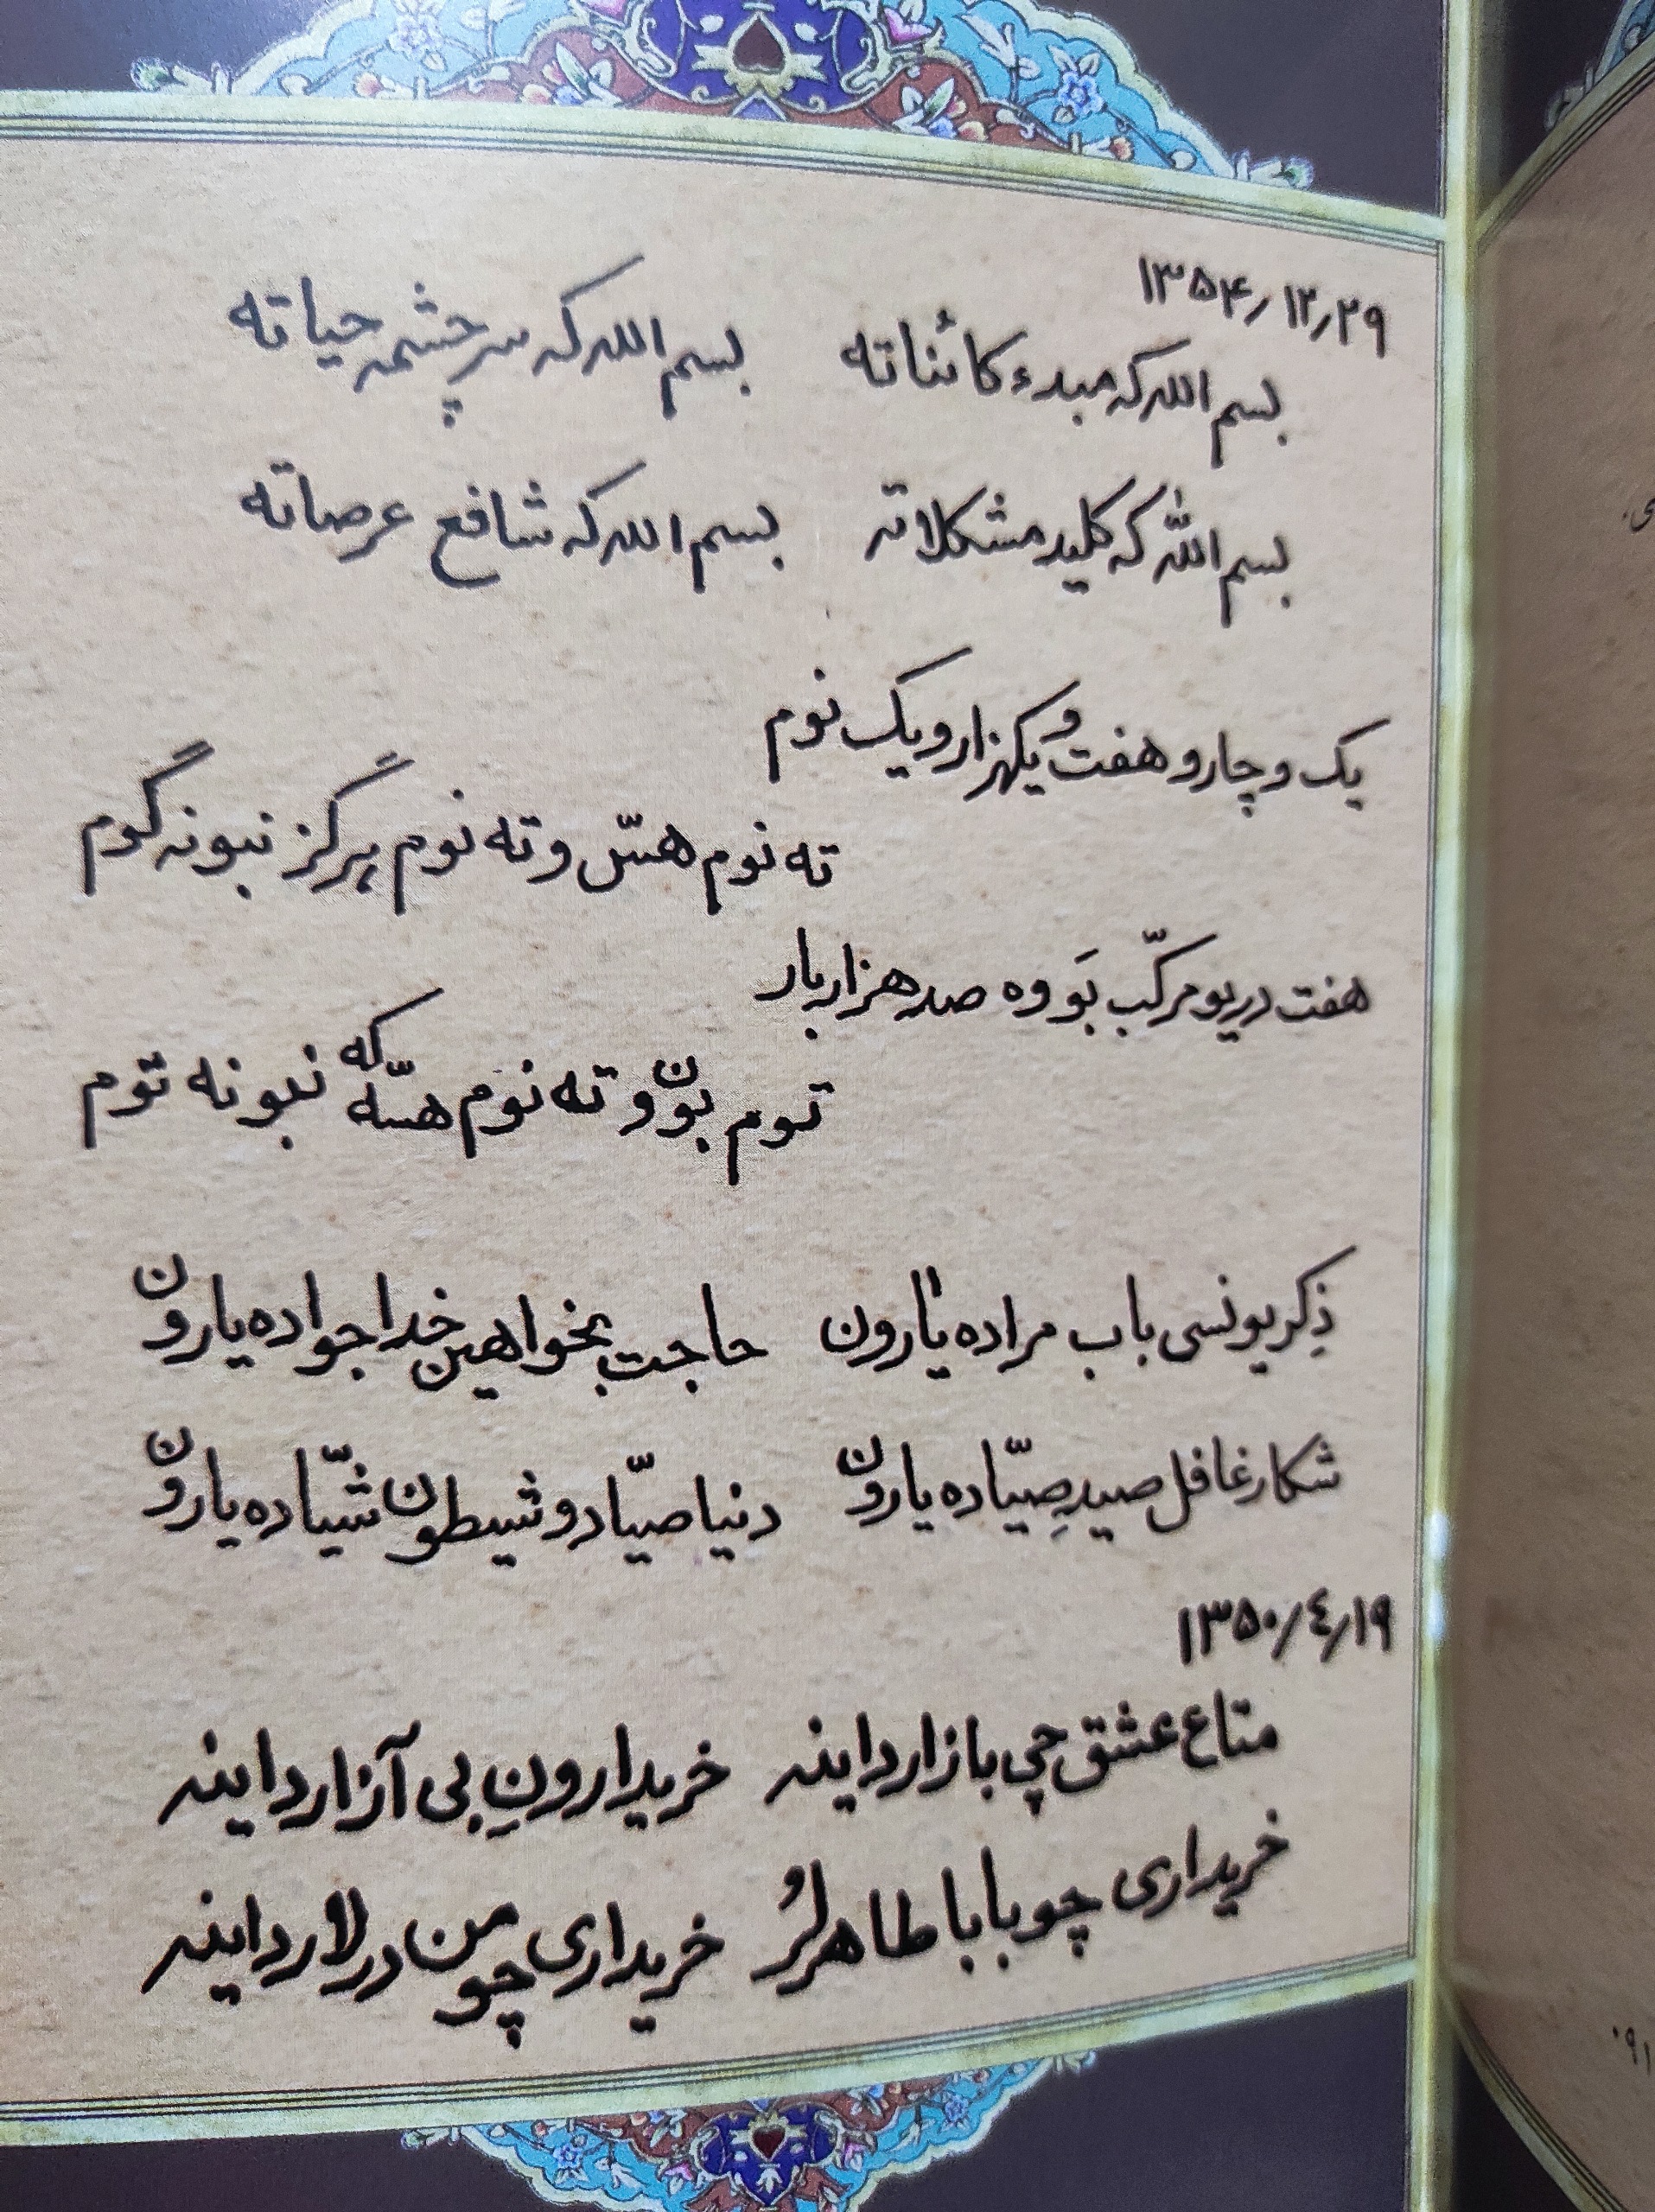 ۱۳۵۴/۱۲/۲۹
بسم الله که مبدء کائناته    بسم الله که سرچشمه حیاته
بسم اللّٰه که کلید مشکلاته    بسم الله که شافع عرصاته
یک و چار و هفت و یکهزار و یک نوم
ته نوم هسّ و ته نوم هرگز نبونه گوم
هفت دریو مرکّب بَو وه صد هزار بار
توم بوّن و ته نوم هسّه که نبونه توم
ذِکر یونسی باب مراده یارون    حاجت بخواهین خدا جواده یارون
شکار غافل صیدِ صیّاده یارون    دنیا صیّاد و شیطون شیّاده یارون
۱۳۵۰/٤/۱۹
متاع عشق چی بازار داینه    خریدارونِ بی آزار داینه
خریداری چو بابا طاهر لُر    خریداری چو من در لار داینه